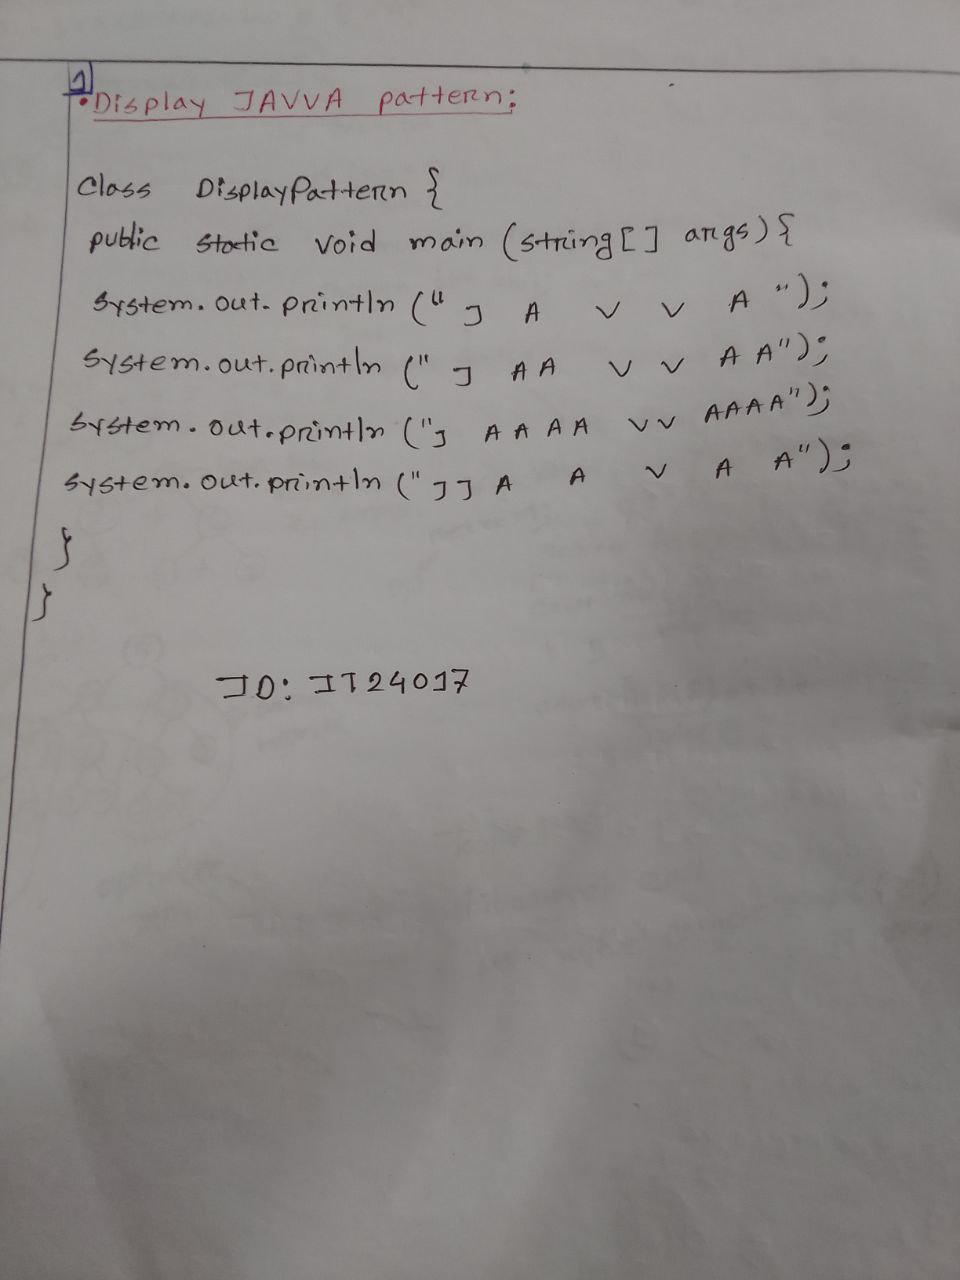 1
• Display JAVVA pattern:
Class DisplayPattern {
public static void main (string[] args) {
System.out.println (" J A V V A ");
System.out.println (" J A A V V A A");
System.out.println ("J A A A A V V A A A A");
System.out.println ("J J A A V A A");
}
}
ID: IT24017